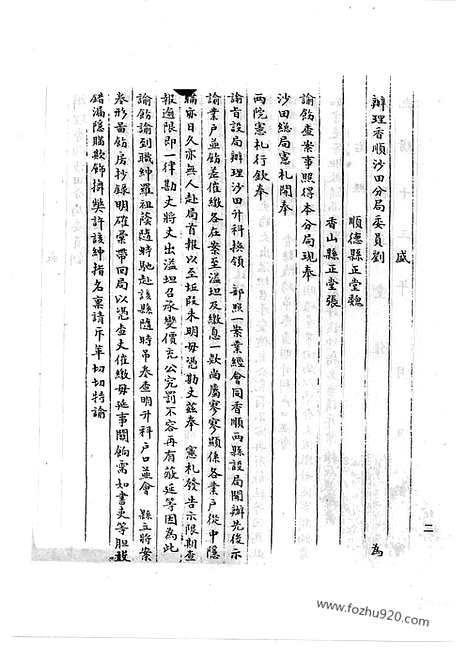 二
辦理香順沙田分局委員劉
順德縣正堂魏 為
香山縣正堂張
諭飭查案事照得本分局現奉
沙田總局憲札開奉
兩院憲札行欽奉
諭旨設局辦理沙田升科換領 部照一案業經會同香順兩縣設局開辦先後示
諭業戶並飭差催繳各在案至溢坦及繳息一款尚屬寥寥顯係各業戶從中隱
瞞亦日久亦無人赴局首報以至坵段未明毋憑勘丈茲奉 憲札發告示限期查
報逾限即一律勘丈將丈出溢坦召承變價充公完罰不容再有藐延等因為此
諭飭諭到職紳羅祖蔭隨時馳赴該縣隨時吊卷查明升科戶口並會 縣立將案
卷形畨飭房抄錄明確彙帶回局以憑查丈催繳毋延事關餉需如書吏等胆敢
錯漏隱瞞欺飾搆獘許該紳指名稟請斥革切切特諭
www.fozhu920.com